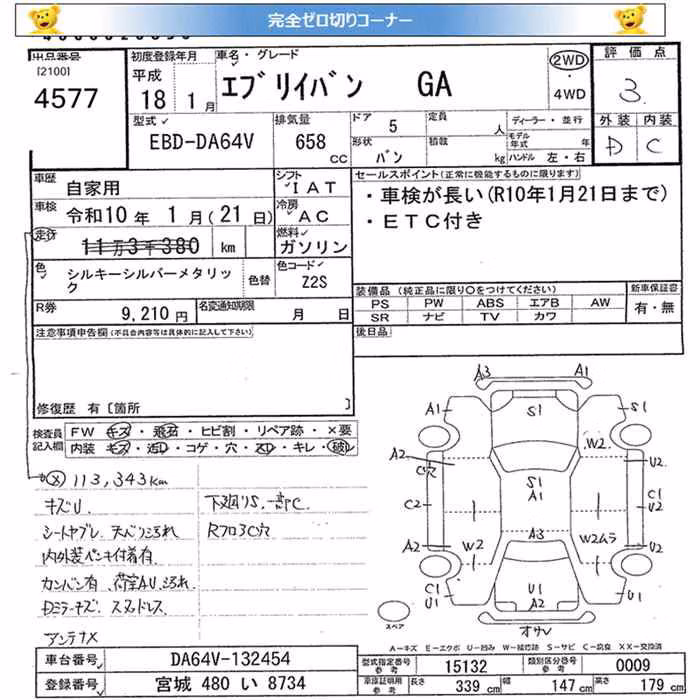 完全ゼロ切りコーナー
出品番号
[2100]
4577
初度登録年月
平成
18 1月
車名・グレード
エブリイバン GA
2WD
・
4WD
評価点
3
外装 内装
D C
型式
EBD-DA64V
排気量
658
CC
ドア 5
定員 人
ディーラー・並行
モデル年式 年
形状 バン
積載 kg
ハンドル 左・右
車歴 自家用
シフト IAT
車検 令和10年 1月(21日)
冷房 AC
走行 11万3千380 km
燃料 ガソリン
色 シルキーシルバーメタリック
色替
色コード Z2S
R券 9,210円
名変通知期限 月 日
セールスポイント(正常に機能するものに限ります)
・車検が長い(R10年1月21日まで)
・ETC付き
装備品 (純正品に限り〇をつけてください)
PS PW ABS エアB AW
SR ナビ TV カワ
新車保証書
有・無
後日品
注意事項申告欄(不具合内容等は具体的に記入して下さい)
修復歴 有〔箇所 〕
検査員記入欄
FW キズ・飛石・ヒビ割・リペア跡・×要
内装 キズ・汚レ・コゲ・穴・スレ・キレ・破レ
113,343km
キズU
シートヤブレ 天バリ汚れ
内外装ペンキ付着有
カンバン有 荷室AU 汚れ
Dミラーキズ スタッドレス
アンテナX
下廻りS、一部C
RフロアC穴
A3 A1
A1 S1 S1
A2 C穴 W2 U2
S1 A1
C2 C1 U2
A3
A2 W2 W2ムラ U2
U1 A2
C1 U1 U1
オサV
スペア
A-キズ E-エクボ U-凹み W-補修跡 S-サビ C-腐食 XX-交換済
車台番号 DA64V-132454
登録番号 宮城 480 い 8734
型式指定番号 参考 15132
類別区分番号 参考 0009
車庫証明用 参考 長さ 339 cm 幅 147 cm 高さ 179 cm